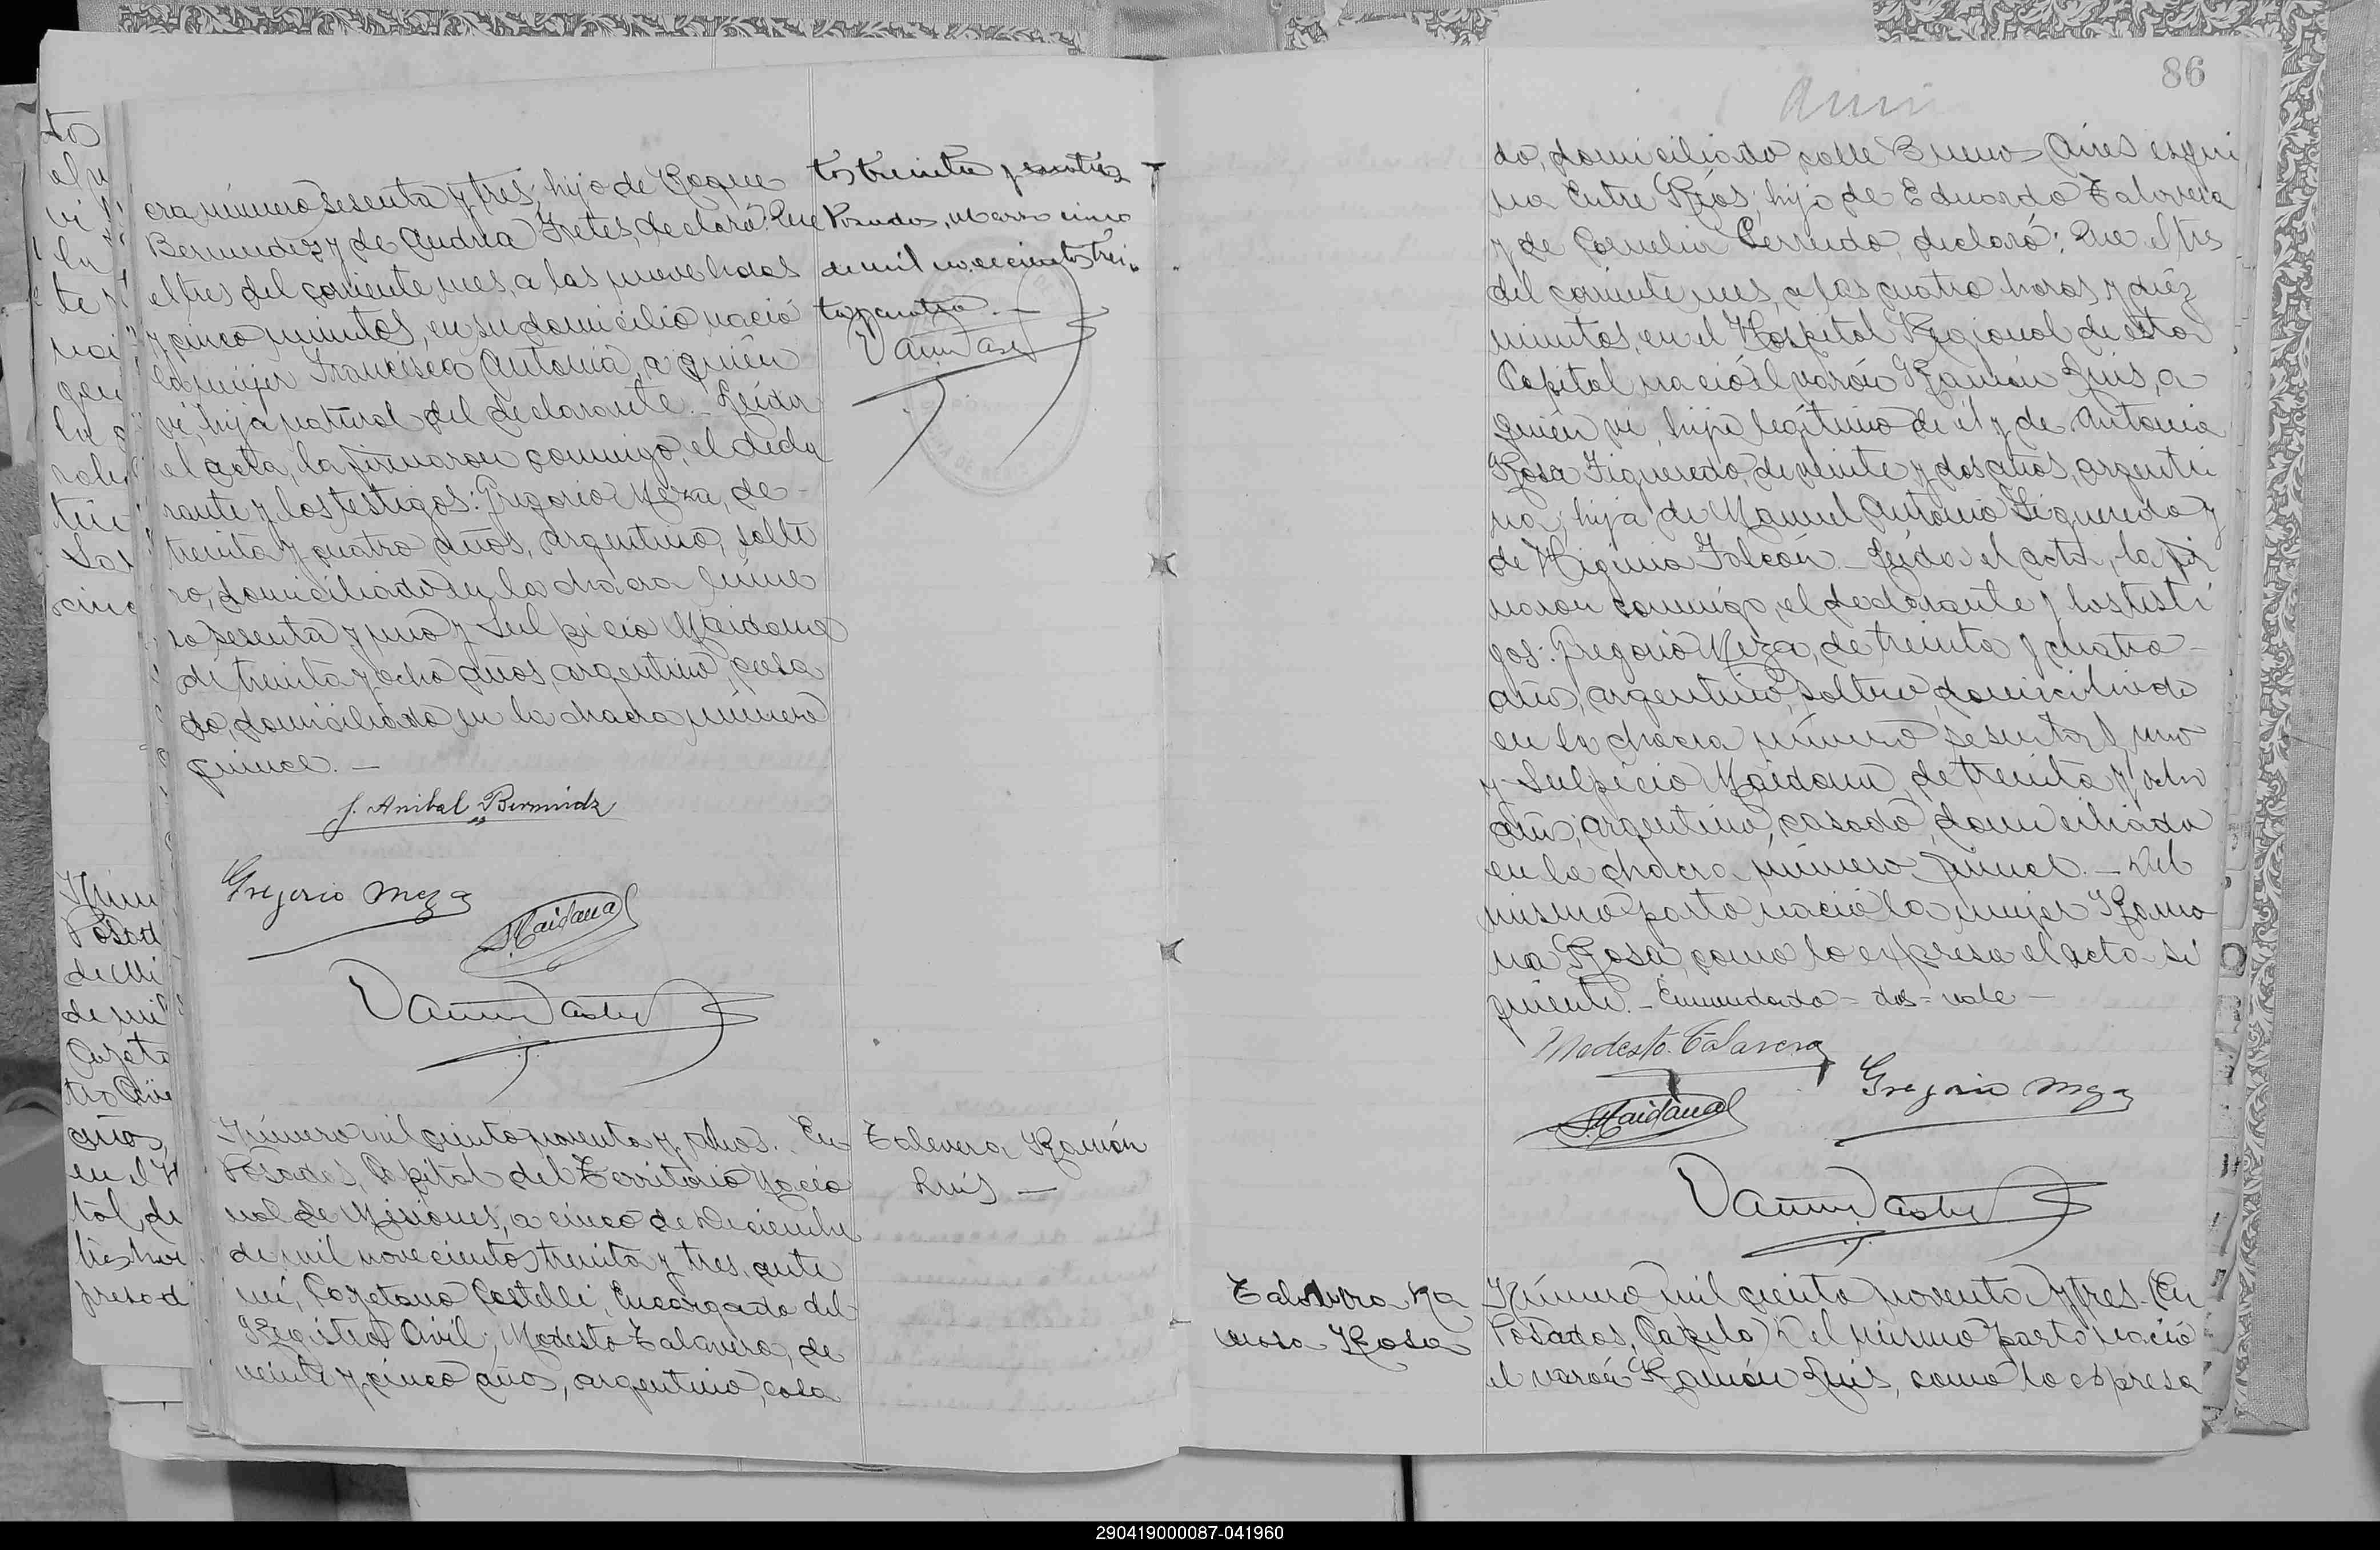 cra número sesenta y tres, hijo de Roque
Bermudez y de Andrea Fretes, declaró: Que
el tres del corriente mes, a las nueve horas
y cinco minutos, en su domicilio nació
la mujer Francisca Antonia, a quién
ví, hija natural del declarante. Leída
el acta, la firmaron conmigo, el decla
rante y los testigos: Gregorio Meza, de
treinta y cuatro años, argentino, solte
ro, domiciliado en la chacra núme
ro sesenta y uno y Sulpicio Maidana
de treinta y ocho años, argentino, casa
do, domiciliado en la chacra número
quince. —
J. Anibal Bermúdz
Gregorio Meza
S. Maidana
tos treinta y cuatro
Posadas, Marzo cinco
de mil novecientos trein
ta y cuatro. —
Número mil ciento noventa y dos. En
Posadas, Capital del Territorio Nacio
nal de Misiones, a cinco de Diciembre
de mil novecientos treinta y tres, ante
mí, Cayetano Castelli, Encargado del
Registro Civil, Modesto Talavera, de
veinte y cinco años, argentino, casa
Talavera Ramón
Luís —
86
do, domiciliado calle Buenos Aires esqui
na Entre Ríos, hijo de Eduardo Talavera
y de Cornelia Cerrudo, declaró: Que el tres
del corriente mes, a las cuatro horas y diéz
minutos, en el Hospital Regional de esta
Capital nació el varón Ramón Luis, a
quién ví, hijo legítimo de él y de Antonia
Rosa Figueredo, de veinte y dos años, argenti
na, hija de Manuel Antonio Figueredo y
de Higinia Falcón. — Leída el acta, la fir
maron conmigo, el declarante y los testi
gos: Gregorio Meza, de treinta y cuatro
años, argentino, soltero, domiciliado
en la chacra número sesenta y uno
y Sulpicio Maidana, de treinta y ocho
años, argentino, casado, domiciliado
en la chacra número quince. — Del
mismo parto nació la mujer Ramo
na Rosa, como lo expresa el acta si
guiente. — Enmendado = dos = vale —
Modesto Talavera
S. Maidana
Gregorio Meza
Talavera Ra
mona Rosa
Número mil ciento noventa y tres. (En
Posadas, Capita) Del mismo parto nació
el varón Ramón Luis, como lo expresa
290419000087-041960